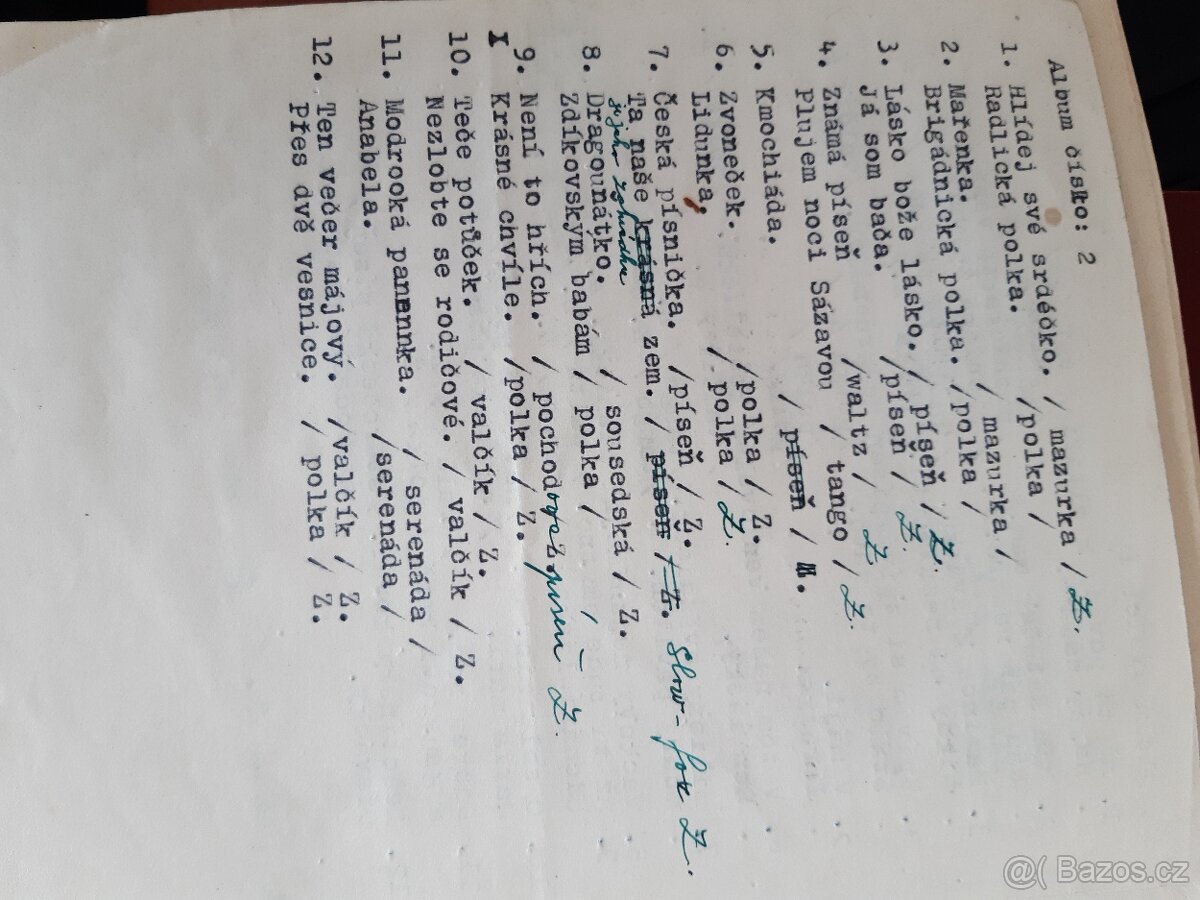 Album číslo: 2
1. Hlídej své srdéčko. / mazurka / Z.
Radlická polka. /polka /
2. Mařenka. / mazurka /
Brigádnická polka. /polka /
3. Lásko bože lásko. / píseň / Z.
Já som bača. /píseň / Z.
4. Známá píseň /waltz / Z
Plujem noci Sázavou / tango / Z.
5. Kmochiáda. / píseň / M.
6. Zvoneček. /polka / Z.
Lidunka. / polka / Z.
7. Česká písnička. /píseň / Z.
Ta naše krásná zem. / píseň / Z. slow-fox Z.
8. Dragounátko. / sousedská / Z.
Zdíkovským babám / polka /
9. Není to hřích. / pochodová píseň – Z.
Krásné chvíle. /polka / Z.
10. Teče potůček. / valčík / Z.
Nezlobte se rodičové. / valčík / Z.
11. Modrooká panenka. / serenáda /
Anabela. /serenáda /
12. Ten večer májový. /valčík / Z.
Přes dvě vesnice. / polka / Z.
@( Bazos.cz